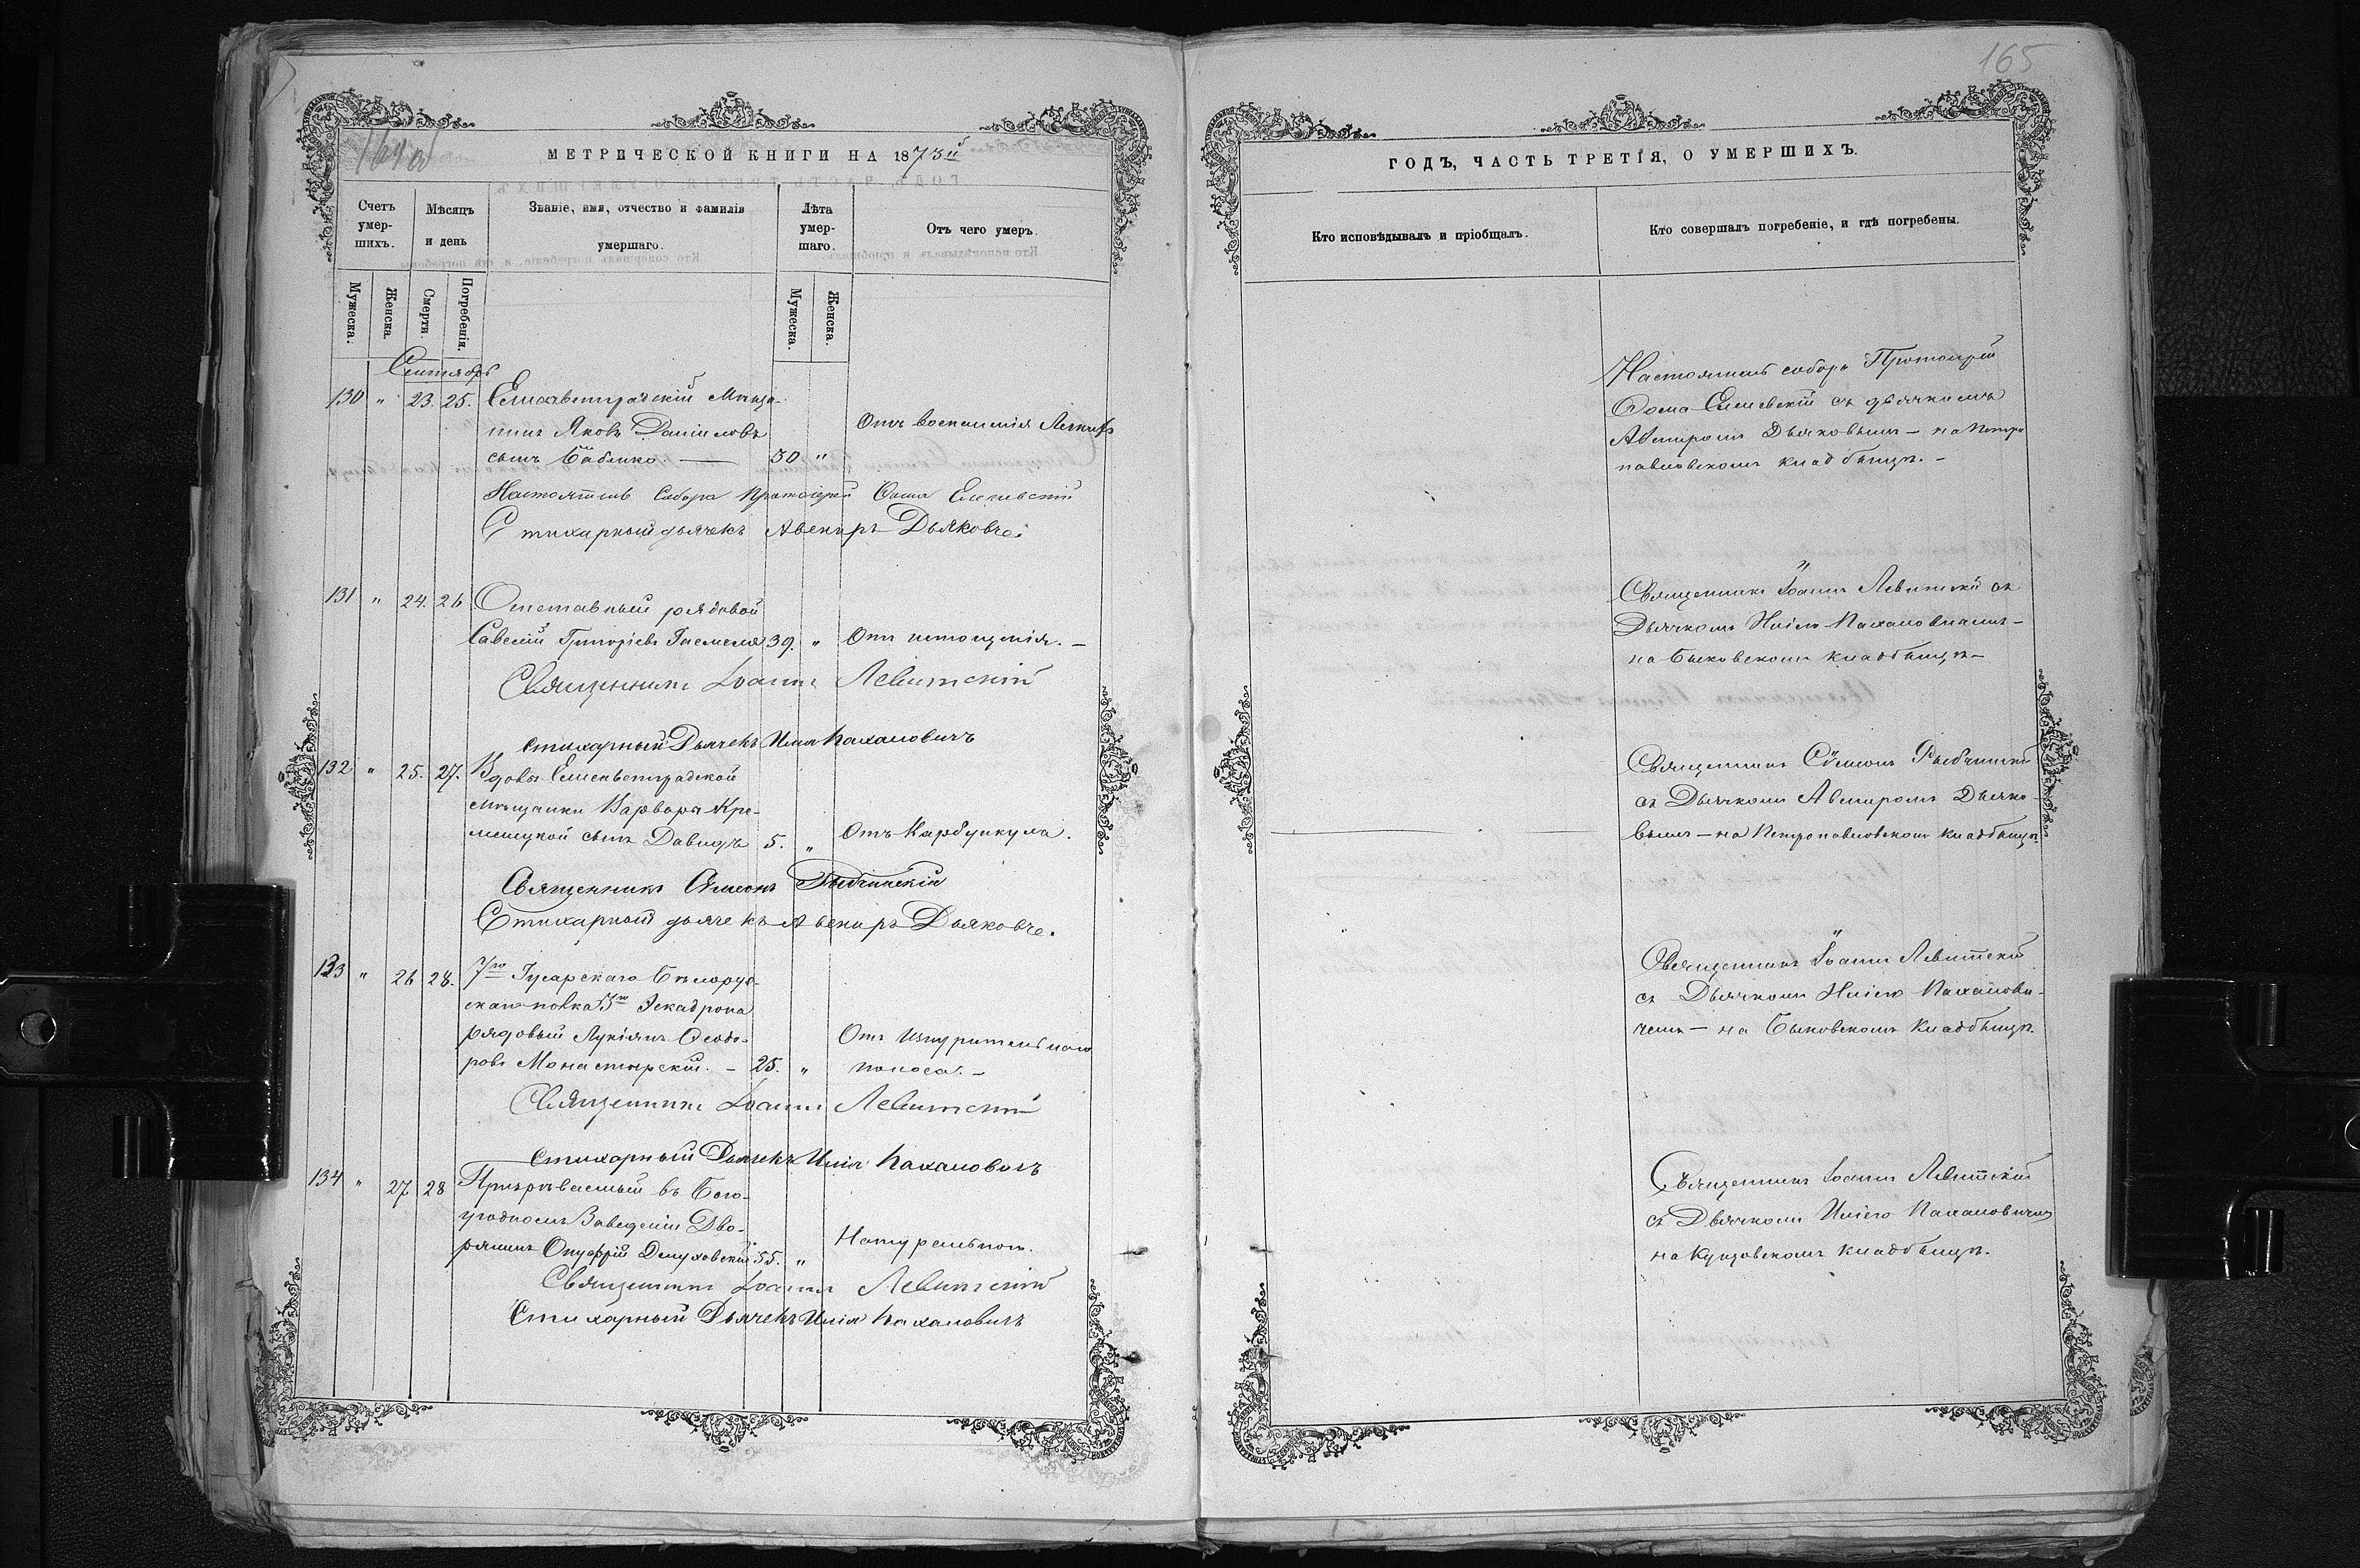 165
МЕТРИЧЕСКОЙ КНИГИ НА 1873й
Счетъ умер-шихъ.
Мѣсяцъ и день
Званіе, имя, отчество и фамилія умершаго.
Лѣта умер-шаго.
Отъ чего умеръ.
Мужеска.
Женска.
Смерти.
Погребенія.
Мужеска.
Женска.
Сентябрь
130 " 23. 25. Елисаветградскій Мѣща-
нинъ Яковъ Даніиловъ
сынъ Бабенко — 30 " Отъ воспаленія Легкихъ
Настоятель Собора Протоіерей Ѳома Еленевскій
Стихарный дьячекъ Авениръ Дьяковъ
131 " 24. 26 Отставный рядовой
Савелій Григорьевъ 39. " Отъ истощенія. —
Священникъ Іоаннъ Левитскій
Стихарный Дьячекъ Илія Пахаловичъ
132 " 25. 27. Вдовы Елисаветградской
мѣщанки Варвары Кре-
менецкой сынъ Давидъ 5. " Отъ Карбункула.
Священникъ Сѵмеонъ Рыбчинскій
Стихарный дьячекъ Авениръ Дьяковъ
133 " 26 28. 7го Гусарскаго Бѣлорус-
скаго полка 3го Эскадрона
рядовый Лукіянъ Ѳеодо-
ровъ Монастырскій. — 25. " Отъ Изнурительнаго
поноса. —
Священникъ Іоаннъ Левитскій
Стихарный Дьячекъ Илія Пахаловичъ
134 " 27 28 Призрѣваемый въ Бого-
угодномъ Заведеніи Дво-
рянинъ Онуфрій 55. " Натуральною.
Священникъ Іоаннъ Левитскій
Стихарный Дьячекъ Илія Пахаловичъ
ГОДЪ, ЧАСТЬ ТРЕТІЯ, О УМЕРШИХЪ.
Кто исповѣдывалъ и пріобщалъ.
Кто совершалъ погребеніе, и гдѣ погребены.
Настоятель собора Протоіерей
Ѳома Еленевскій съ дьячкомъ
Авениромъ Дьяковымъ — на Петро
павловскомъ кладбищѣ. —
Священникъ Іоаннъ Левитскій съ
Дьячкомъ Иліею Пахаловичемъ —
на Быковскомъ кладбищѣ —
Священникъ Сѵмеонъ Рыбчинскій
съ Дьячкомъ Авениромъ Дьяко-
вымъ — на Петропавловскомъ кладбищѣ.
Священникъ Іоаннъ Левитскій
съ Дьячкомъ Иліею Пахалови-
чемъ — на Быковскомъ Кладбищѣ.
Священникъ Іоаннъ Левитскій
съ Дьячкомъ Иліею Пахаловичемъ
на Кущовскомъ кладбищѣ.